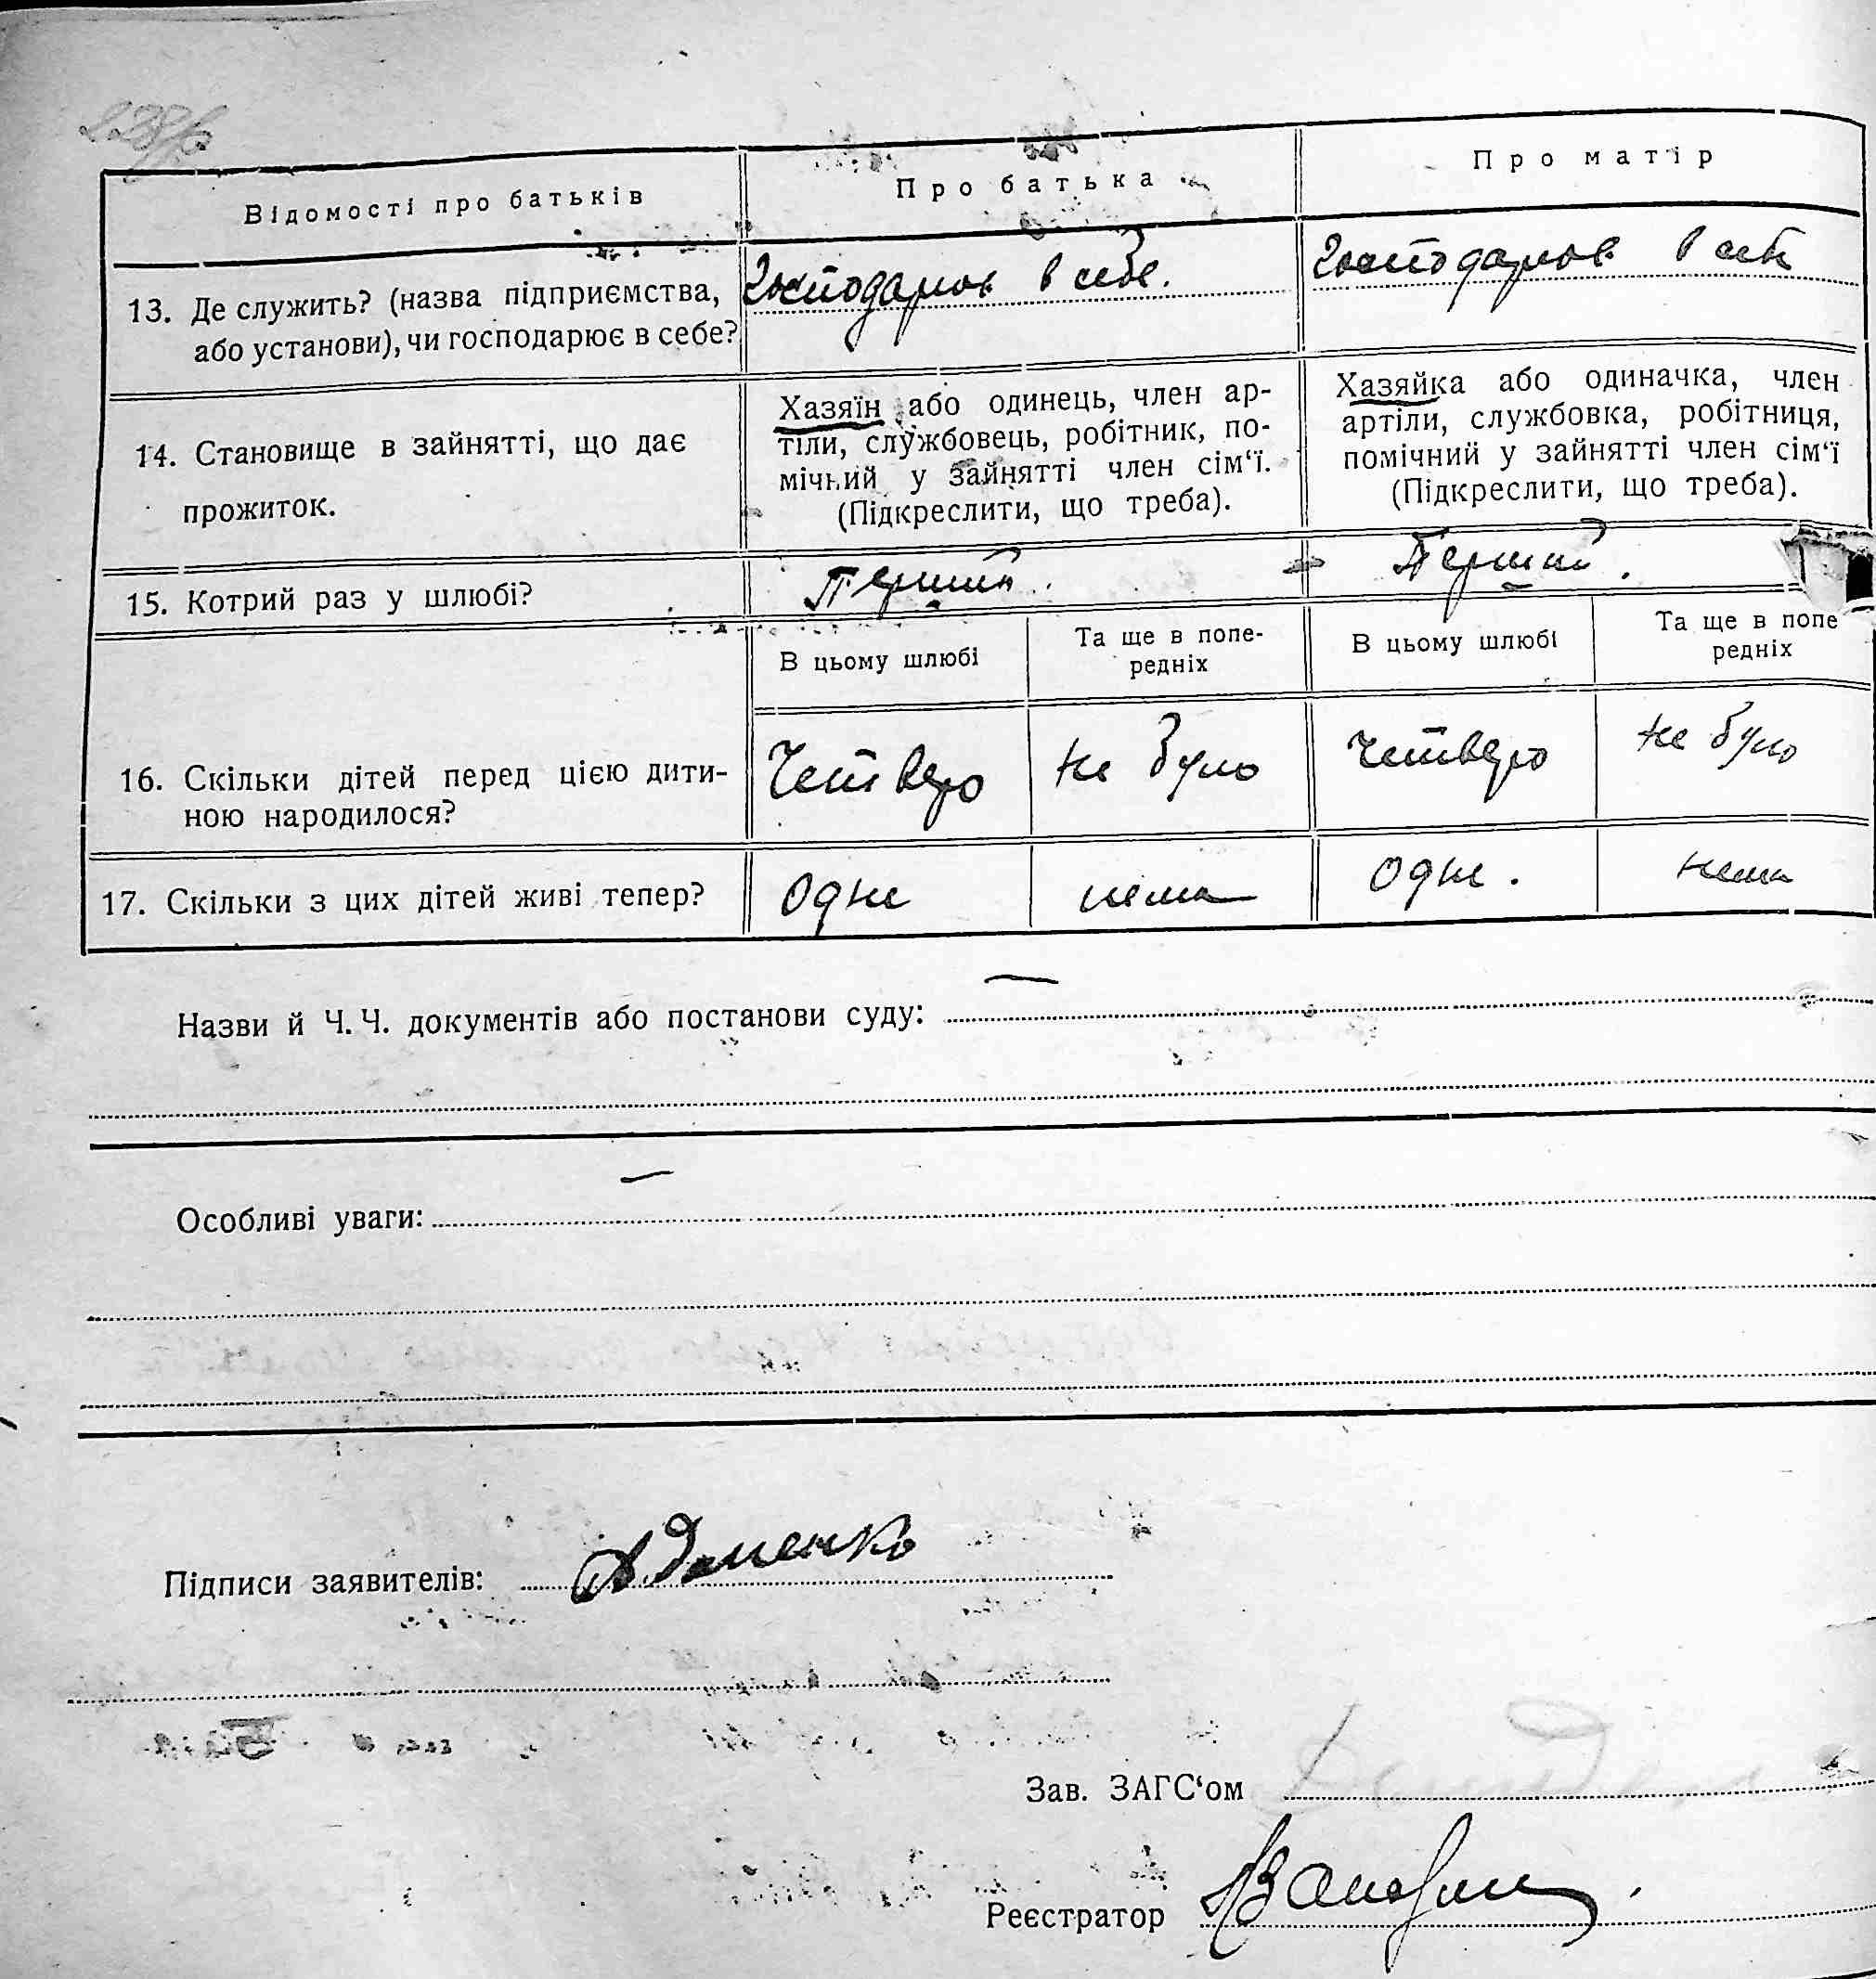 Відомості про батьків
Про батька
Про матір
13. Де служить? (назва підприємства,
або установи), чи господарює в себе?
Господарює в себе.
Господарює в себе
14. Становище в зайнятті, що дає
прожиток.
Хазяїн або одинець, член ар-
тіли, службовець, робітник, по-
мічний у зайнятті член сім‘ї.
(Підкреслити, що треба).
Хазяйка або одиначка, член
артіли, службовка, робітниця,
помічний у зайнятті член сім‘ї
(Підкреслити, що треба).
15. Котрий раз у шлюбі?
Перший.
Перший.
В цьому шлюбі
Та ще в попе-
редніх
В цьому шлюбі
Та ще в попе
редніх
16. Скільки дітей перед цією дити-
ною народилося?
Четверо
не було
четверо
не було
17. Скільки з цих дітей живі тепер?
Одне
нема
Одне.
нема
Назви й Ч. Ч. документів або постанови суду: —
Особливі уваги: —
Підписи заявителів:
Зав. ЗАГС‘ом
Реєстратор